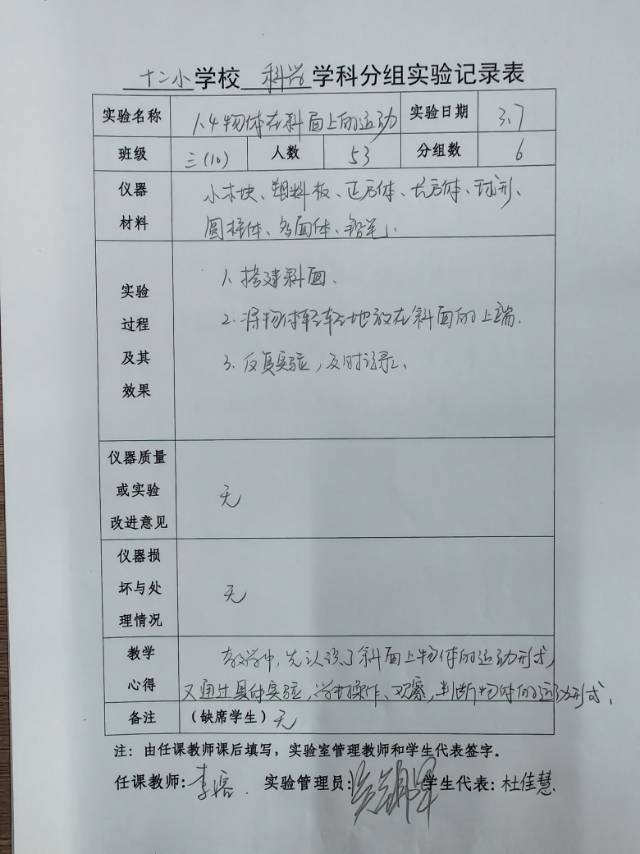 十二小学校 科学 学科分组实验记录表
实验名称 1.4物体在斜面上的运动 实验日期 3.7
班级 三(10) 人数 53 分组数 6
仪器材料 小木块、塑料板、正方体、长方体、球形、
圆柱体、多面体、铅笔、
实验过程及其效果 1. 搭建斜面.
2. 将物体轻轻地放在斜面的上端.
3. 反复实验，及时记录.
仪器质量或实验改进意见 无
仪器损坏与处理情况 无
教学心得 教学中，先认识了斜面上物体的运动形式，
又通过具体实验，学生操作、观察，判断物体的运动形式.
备注 (缺席学生) 无
注：由任课教师课后填写，实验室管理教师和学生代表签字。
任课教师: 李 实验管理员: 学生代表: 杜佳慧